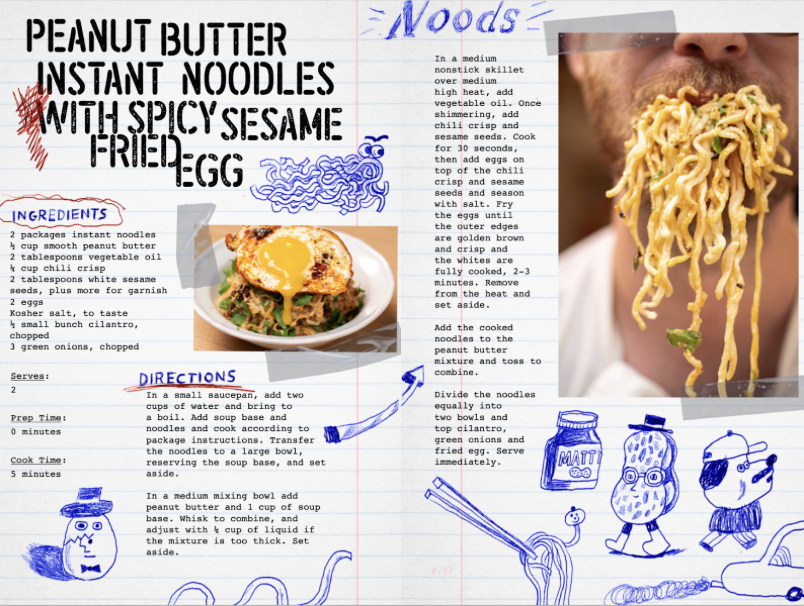 PEANUT BUTTER
INSTANT NOODLES
WITH SPICY SESAME
FRIED EGG
INGREDIENTS
2 packages instant noodles
½ cup smooth peanut butter
2 tablespoons vegetable oil
¼ cup chili crisp
2 tablespoons white sesame
seeds, plus more for garnish
2 eggs
Kosher salt, to taste
½ small bunch cilantro,
chopped
3 green onions, chopped
Serves:
2
Prep Time:
0 minutes
Cook Time:
5 minutes
DIRECTIONS
In a small saucepan, add two
cups of water and bring to
a boil. Add soup base and
noodles and cook according to
package instructions. Transfer
the noodles to a large bowl,
reserving the soup base, and set
aside.
In a medium mixing bowl add
peanut butter and 1 cup of soup
base. Whisk to combine, and
adjust with ¼ cup of liquid if
the mixture is too thick. Set
aside.
Noods
In a medium
nonstick skillet
over medium
high heat, add
vegetable oil. Once
shimmering, add
chili crisp and
sesame seeds. Cook
for 30 seconds,
then add eggs on
top of the chili
crisp and sesame
seeds and season
with salt. Fry
the eggs until
the outer edges
are golden brown
and crisp and
the whites are
fully cooked, 2-3
minutes. Remove
from the heat and
set aside.
Add the cooked
noodles to the
peanut butter
mixture and toss to
combine.
Divide the noodles
equally into
two bowls and
top cilantro,
green onions and
fried egg. Serve
immediately.
MATTI